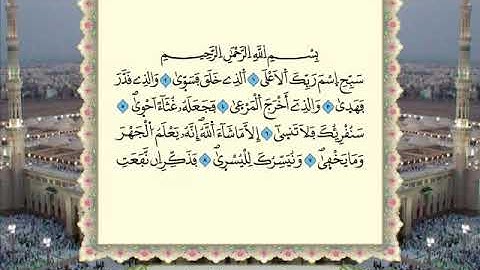 بِسْمِ اللَّهِ الرَّحْمَٰنِ الرَّحِيمِ
سَبِّحِ اسْمَ رَبِّكَ الْأَعْلَى ۝١ الَّذِي خَلَقَ فَسَوَّىٰ ۝٢ وَالَّذِي قَدَّرَ
فَهَدَىٰ ۝٣ وَالَّذِي أَخْرَجَ الْمَرْعَىٰ ۝٤ فَجَعَلَهُ غُثَاءً أَحْوَىٰ ۝٥
سَنُقْرِئُكَ فَلَا تَنسَىٰ ۝٦ إِلَّا مَا شَاءَ اللَّهُ إِنَّهُ يَعْلَمُ الْجَهْرَ
وَمَا يَخْفَىٰ ۝٧ وَنُيَسِّرُكَ لِلْيُسْرَىٰ ۝٨ فَذَكِّرْ إِن نَّفَعَتِ